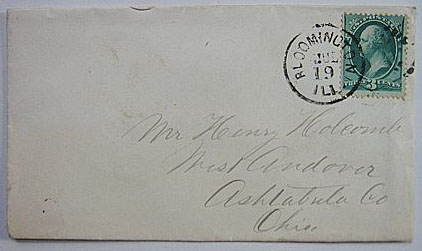 BLOOMINGTON
JUL
19
ILL.
3 CENTS
Mr Henry Holcomb
West Andover
Ashtabula Co
Ohio.